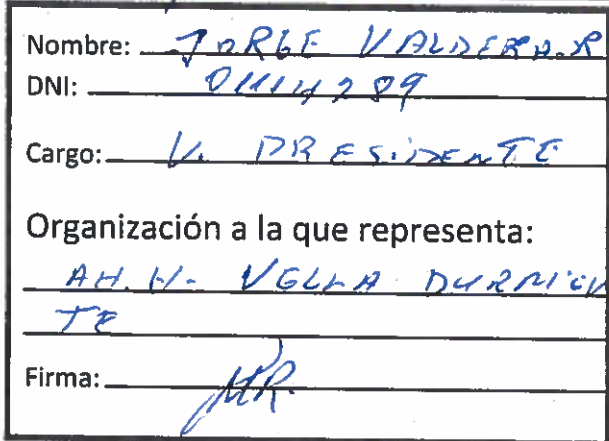 Nombre: JORGE VALDERA.R
DNI: 01114289
Cargo: V. PRESIDENTE
Organización a la que representa:
AH. H- VELLA DURMIEN
TE
Firma: